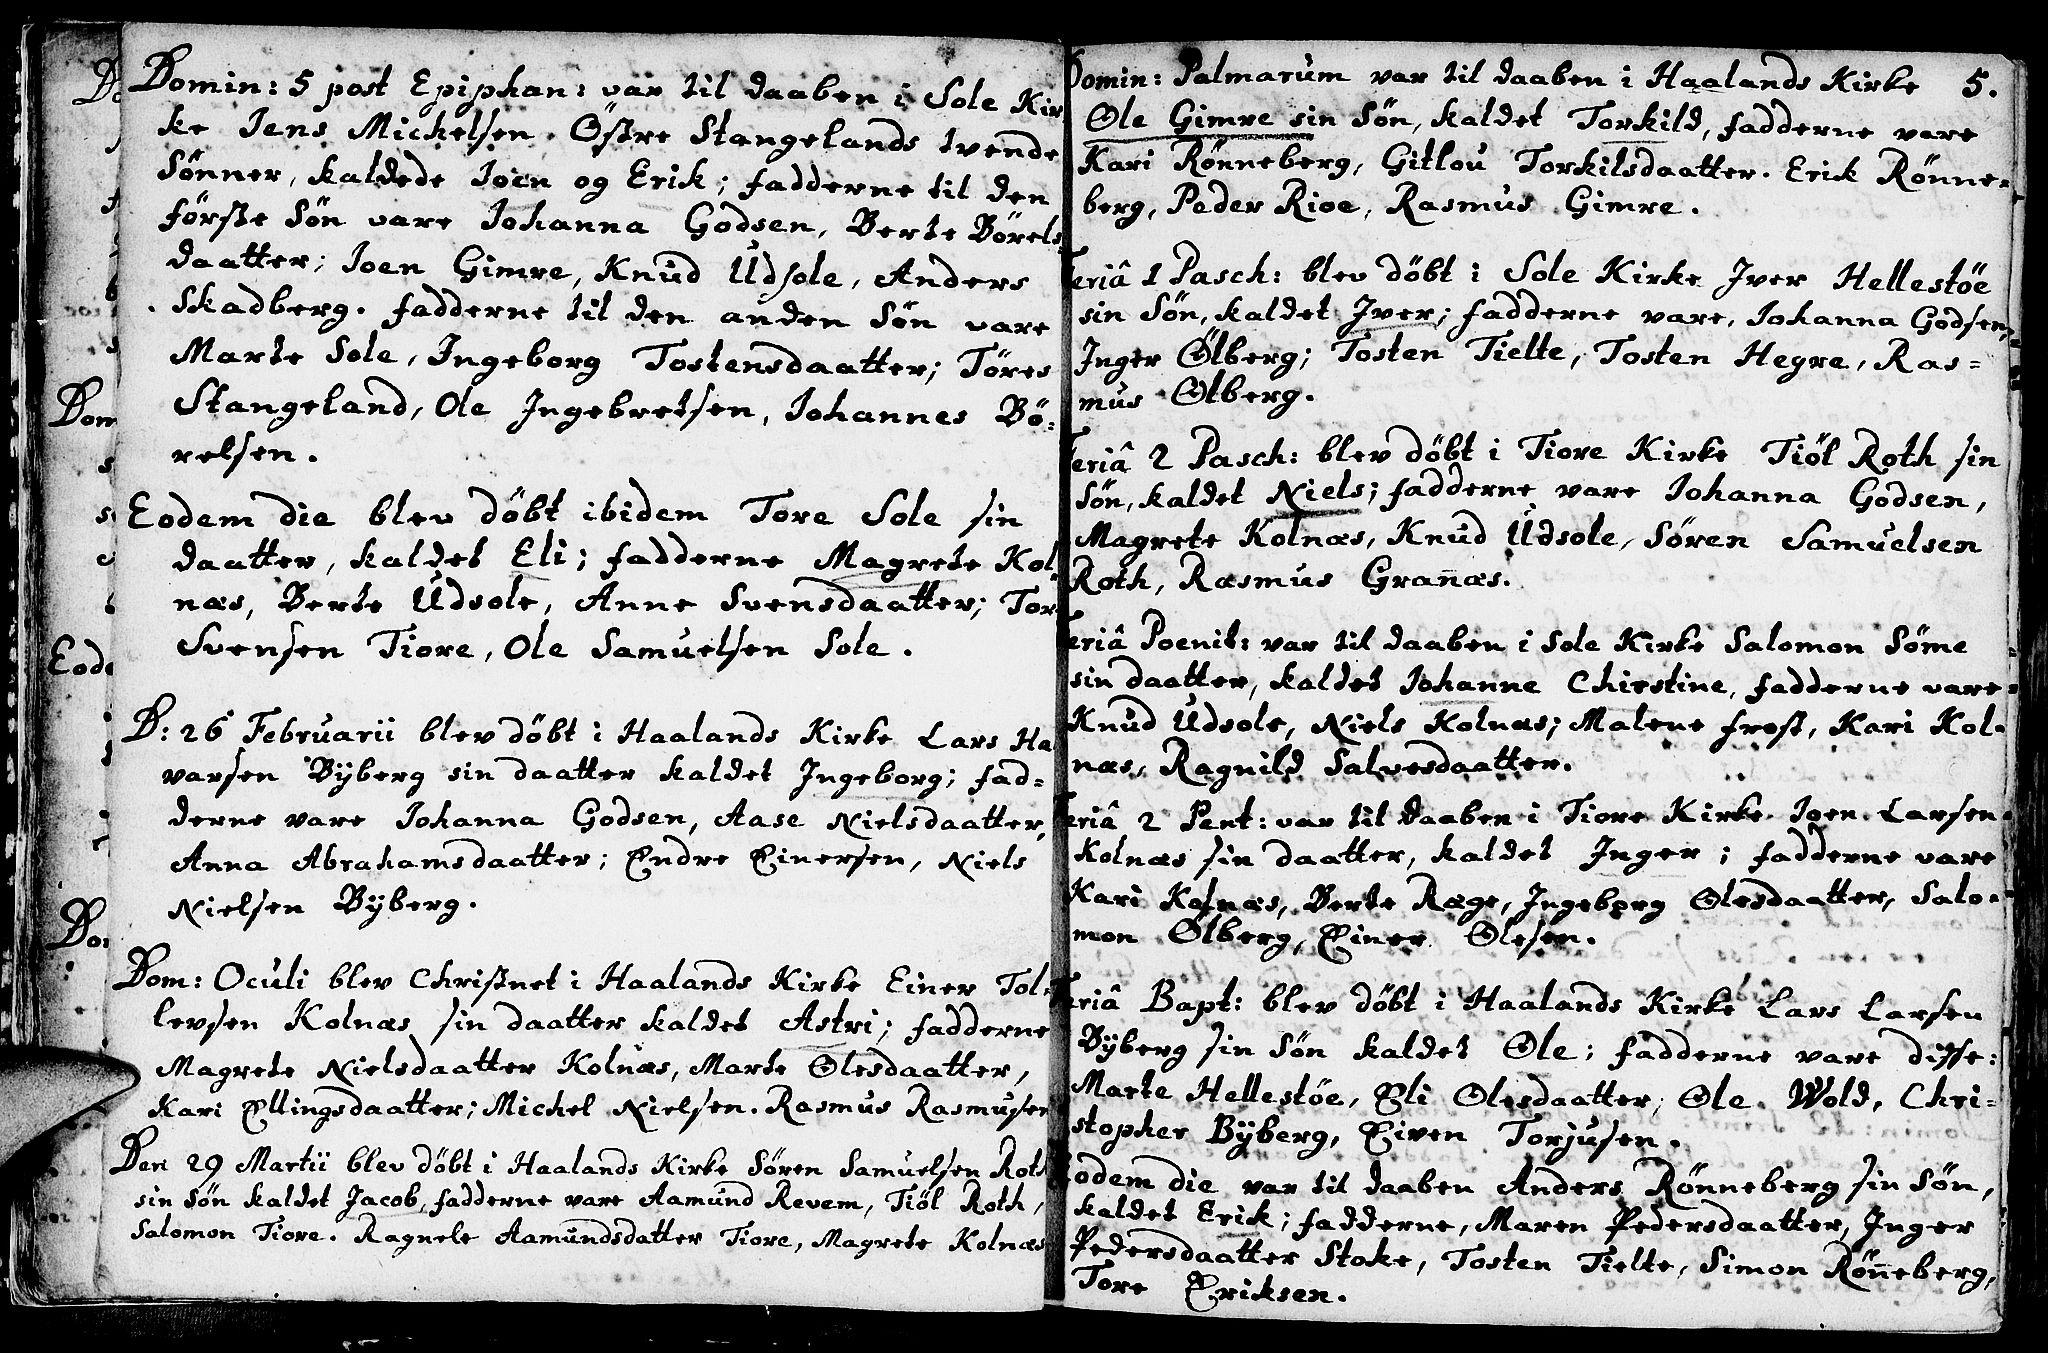 Domin: 5 post Epiphan: var til daaben i Sole Kir
ke Jens Michelsen Östre Stangelands tvende
Sönner, kaldede Joen og Erik; fadderne til den
förste Sön vare Johanna Godsen, Berte Börels
daatter; Joen Gimre, Knud Udsole, Anders
Skadberg. fadderne til den anden Sön vare
Marte Sole, Ingeborg Tostensdaatter; Töres
Stangeland, Ole Ingebretsen, Johannes Bö=
relsen.
Eodem die blev döbt ibidem Tore Sole sin
daatter, kaldet Eli; fadderne Magrete Kol
næs, Berte Udsole, Anne Svensdaatter; Tor
Svensen Tiore, Ole Samuelsen Sole.
D: 26 Februarii blev döbt i Haalands Kirke Lars Ha
varsen Bÿberg sin daatter kaldet Ingeborg; fad=
derne vare Johanna Godsen, Aase Nielsdaatter,
Anna Abrahamsdaatter; Endre Einersen, Niels
Nielsen Bÿberg.
Dom: Oculi blev Christnet i Haalands Kirke Einer Tol
levsen Kolnæs sin daatter kaldet Astri; fadderne
Magrete Nielsdaatter Kolnæs, Marte Olesdaatter,
Kari Ellingsdaatter; Michel Nielsen. Rasmus Rasmusen
Den 29 Martii blev döbt i Haalands Kirke Sören Samuelsen Roth
sin Sön kaldet Jacob, fadderne vare Aamund Revem, Tiöl Roth,
Salomon Tiore. Ragnele Aamundsdatter Tiore, Magrete Kolnæs
Domin: Palmarum var til daaben i Haalands Kirke 5.
Ole Gimre sin Sön, kaldet Torkild, fadderne vare
Kari Rönneberg, Gitlou Torkilsdaatter. Erik Rönne=
berg, Peder Rioe, Rasmus Gimre.
Feriâ 1 Pasch: blev döbt i Sole Kirke Iver Hellestöe
sin Sön, kaldet Iver; fadderne vare, Johanna Godsen,
Inger Ölberg; Tosten Tielte, Tosten Hegre, Ras=
mus Ölberg.
Feriâ 2 Pasch: blev döbt i Tiore Kirke Tiöl Roth sin
Sön, kaldet Niels; fadderne vare Johanna Godsen,
Magrete Kolnæs, Knud Udsole, Sören Samuelsen
Roth, Rasmus Grañæs.
Feriâ Poenit: var til daaben i Sole Kirke Salomon Söme
sin daatter, kaldet Johanne Chirstine, fadderne vare
Knud Udsole, Niels Kolnæs; Malene frost, Kari Kol=
næs, Ragnild Salvesdaatter.
Feriâ 2 Pent: var til daaben i Tiore Kirke Joen Larsen
Kolnæs sin daatter, kaldet Inger; fadderne vare
Kari Kolnæs, Berte Ræge, Ingeborg Olesdaatter, Salo=
mon Ölberg, Einer Olesen.
Feriâ Bapt: blev döbt i Haalands Kirke Lars Larsen
Bÿberg sin Sön kaldet Ole; fadderne vare disse:
Marte Hellestöe, Eli Olesdaatter, Ole Wold, Chri=
stopher Bÿberg, Eiven Torjusen.
Eodem die var til daaben Anders Rönneberg sin Sön,
kaldet Erik; fadderne, Maren Pedersdaatter, Inger
Pedersdaatter Stoke, Tosten Tielte, Simon Röñeberg,
Tore Eriksen.